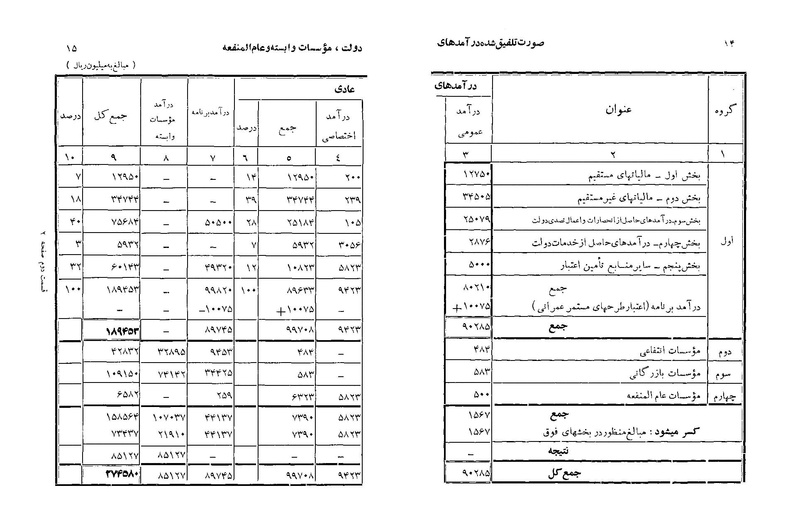 ۱۴
صورت تلفیق شده درآمدهای
گروه
عنوان
درآمدهای
درآمد عمومی
۱ ۲ ۳
اول
بخش اول ـ مالیاتهای مستقیم ۱۲۷۵۰
بخش دوم ـ مالیاتهای غیرمستقیم ۳۴۵۰۵
بخش سوم ـ درآمدهای حاصل از انحصارات و اعمال تصدی دولت ۲۵۰۷۹
بخش چهارم ـ درآمدهای حاصل از خدمات دولت ۲۸۷۶
بخش پنجم ـ سایر منابع تأمین اعتبار ۵۰۰۰
جمع ۸۰۲۱۰
درآمد برنامه (اعتبار طرحهای مستمر عمرانی) ۱۰۰۷۵+
جمع ۹۰۲۸۵
دوم مؤسسات انتفاعی ۴۸۴
سوم مؤسسات بازرگانی ۵۸۳
چهارم مؤسسات عام المنفعه ۵۰۰
جمع ۱۵۶۷
کسر میشود : مبالغ منظور در بخشهای فوق ۱۵۶۷
نتیجه ـ
جمع کل ۹۰۲۸۵
دولت ، مؤسسات وابسته و عام المنفعه
۱۵
( مبالغ به میلیون ریال )
عادی
درآمد اختصاصی
جمع
درصد
درآمد برنامه
درآمد مؤسسات وابسته
جمع کل
درصد
۴ ۵ ۶ ۷ ۸ ۹ ۱۰
۲۰۰ ۱۲۹۵۰ ۱۴ ـ ـ ۱۲۹۵۰ ۷
۲۳۹ ۳۴۷۴۴ ۳۹ ـ ـ ۳۴۷۴۴ ۱۸
۱۰۵ ۲۵۱۸۴ ۲۸ ۵۰۵۰۰ ـ ۷۵۶۸۴ ۴۰
۳۰۵۶ ۵۹۳۲ ۷ ـ ـ ۵۹۳۲ ۳
۵۸۲۳ ۱۰۸۲۳ ۱۲ ۴۹۳۲۰ ـ ۶۰۱۴۳ ۳۲
۹۴۲۳ ۸۹۶۳۳ ۱۰۰ ۹۹۸۲۰ ـ ۱۸۹۴۵۳ ۱۰۰
ـ ۱۰۰۷۵+ ۱۰۰۷۵− ـ ـ
۹۴۲۳ ۹۹۷۰۸ ۸۹۷۴۵ ـ ۱۸۹۴۵۳
ـ ۴۸۴ ۹۴۵۳ ۳۲۸۹۵ ۴۲۸۳۲
ـ ۵۸۳ ۳۴۴۲۵ ۷۴۱۴۲ ۱۰۹۱۵۰
۵۸۲۳ ۶۳۲۳ ۲۵۹ ـ ۶۵۸۲
۵۸۲۳ ۷۳۹۰ ۴۴۱۳۷ ۱۰۷۰۳۷ ۱۵۸۵۶۴
۵۸۲۳ ۷۳۹۰ ۴۴۱۳۷ ۲۱۹۱۰ ۷۳۴۳۷
ـ ـ ـ ۸۵۱۲۷ ۸۵۱۲۷
۹۴۲۳ ۹۹۷۰۸ ۸۹۷۴۵ ۸۵۱۲۷ ۲۷۴۵۸۰
قسمت دوم صفحه ۲